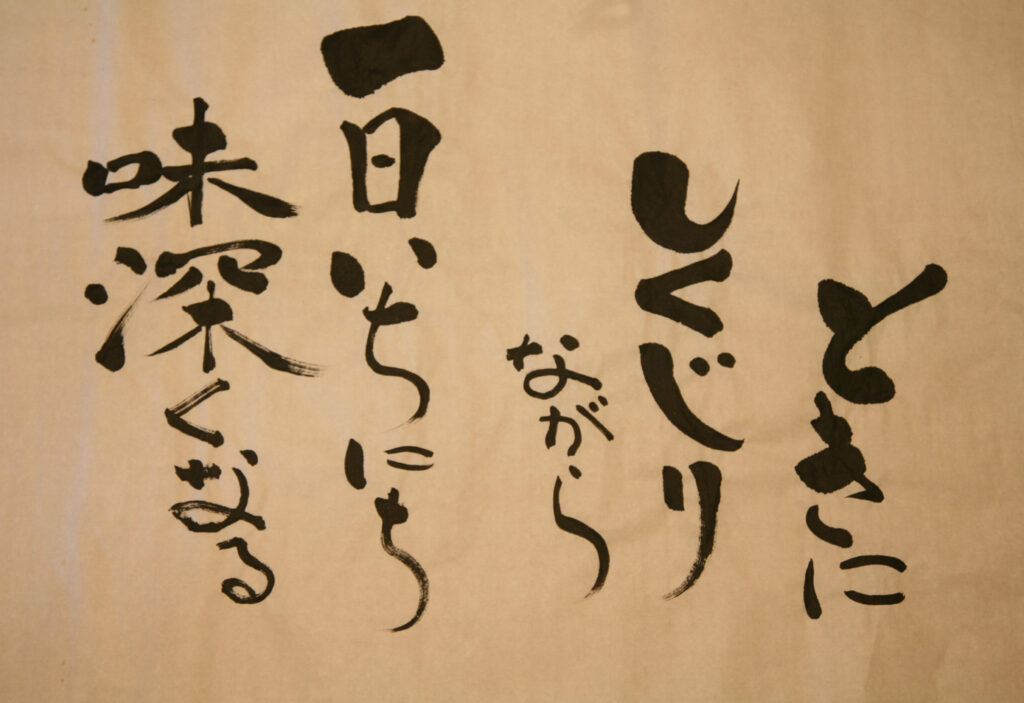 ときに
しくじり
ながら
一日いちにち
味深くなる